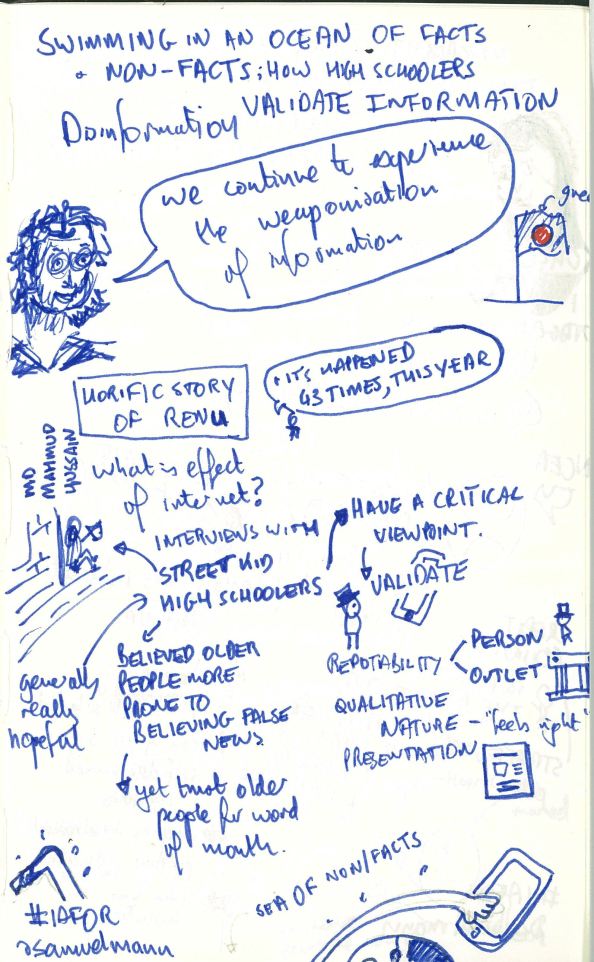 SWIMMING IN AN OCEAN OF FACTS
& NON-FACTS; HOW HIGH SCHOOLERS
VALIDATE INFORMATION
Disinformation
we continue to experience
the weaponisation
of information
HORIFIC STORY
OF RENU
IT'S HAPPENED
43 TIMES, THIS YEAR
MD
MAHMUD
HUSSAIN
what is effect
of internet?
INTERVIEWS WITH
STREET KID
HIGH SCHOOLERS
HAVE A CRITICAL
VIEWPOINT.
VALIDATE
generally
really
hopeful
BELIEVED OLDER
PEOPLE MORE
PRONE TO
BELIEVING FALSE
NEWS
yet trust older
people for word
of mouth.
REPUTABILITY
PERSON
OUTLET
QUALITATIVE
NATURE - "feels right"
PRESENTATION
SEA OF NON/FACTS
#IAFOR
@samuelmann